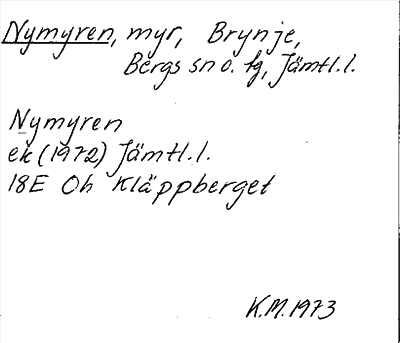 Nymyren, myr, Brynje,
Bergs sn o. tg, Jämtl.l.
Nymyren
ek (1972) Jämtl.l.
18E Oh Kläppberget
K.M. 1973